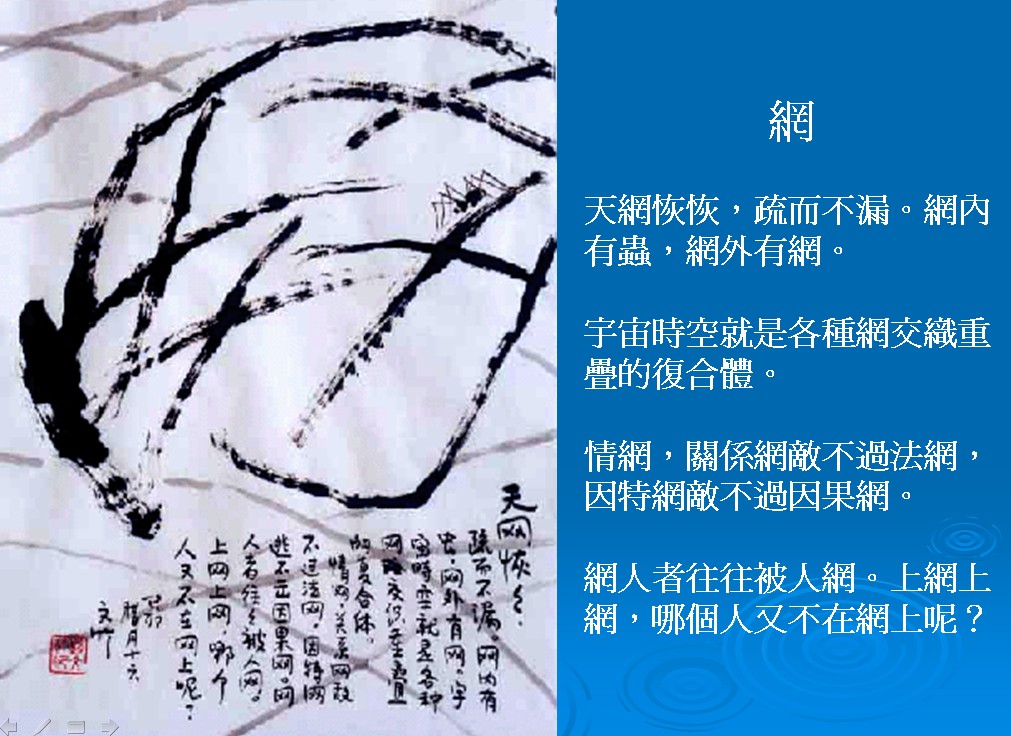 網
天網恢恢，疏而不漏。網內
有蟲，網外有網。
宇宙時空就是各種網交織重
疊的復合體。
情網，關係網敵不過法網，
因特網敵不過因果網。
網人者往往被人網。上網上
網，哪個人又不在網上呢？
天网恢々，
疏而不漏。网内有
虫，网外有网。宇
宙時空就是各种
网交织重叠
的复合体。
情网，关系网敌
不过法网。因特网
逃不因果网。网
人者往々被人网。
上网上网，哪个
人又不在网上呢？
腊月十六
文竹